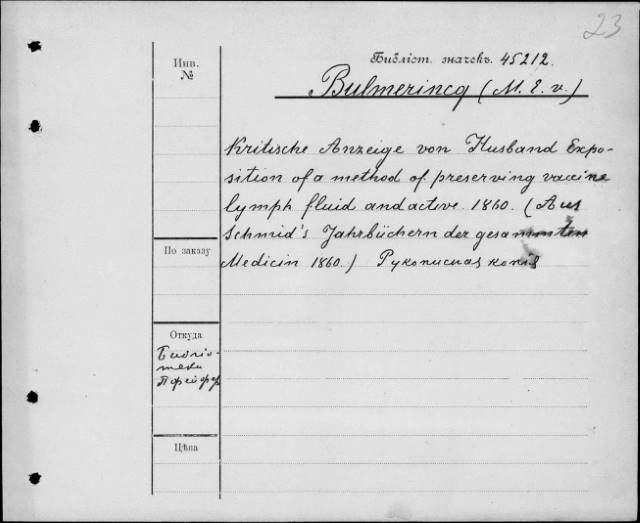 23
Библіот. значекъ. 45212.
Bulmerincq (M. E. v.)
Инв.
№
Kritische Anzeige von Husband Expo-
sition of a method of preserving vaccine
lymph fluid and active. 1860. (Aus
Schmid's Jahrbüchern der gesammten
Medicin 1860.) Рукописная копія
По заказу
Откуда
Библіо-
теки
Пфейфер
Цѣна